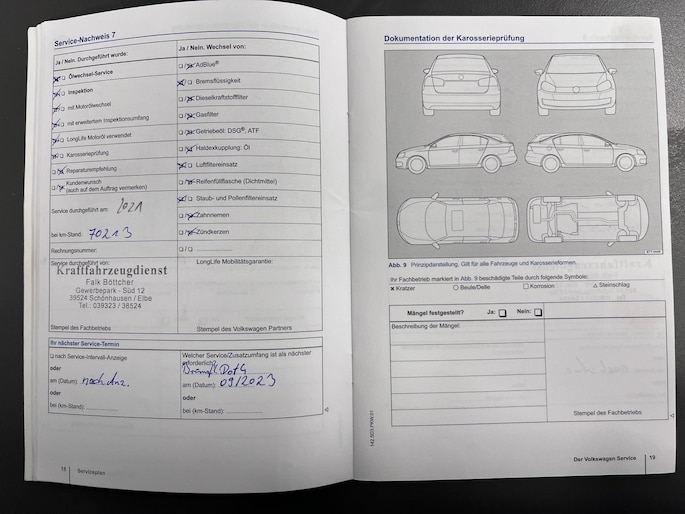 Service-Nachweis 7
Ja / Nein. Durchgeführt wurde:
Ölwechsel-Service
Inspektion
mit Motorölwechsel
mit erweitertem Inspektionsumfang
LongLife Motoröl verwendet
Karosserieprüfung
Reparaturempfehlung
Kundenwunsch
(auch auf dem Auftrag vermerken)
Service durchgeführt am: 2021
bei km-Stand: 70213
Rechnungsnummer:
Service durchgeführt von:
Kraftfahrzeugdienst
Falk Böttcher
Gewerbepark - Süd 12
39524 Schönhausen / Elbe
Tel.: 039323 / 38524
Stempel des Fachbetriebs
Ja / Nein. Wechsel von:
AdBlue®
Bremsflüssigkeit
Dieselkraftstofffilter
Gasfilter
Getriebeöl: DSG®, ATF
Haldexkupplung: Öl
Luftfiltereinsatz
Reifenfüllflasche (Dichtmittel)
Staub- und Pollenfiltereinsatz
Zahnriemen
Zündkerzen
LongLife Mobilitätsgarantie:
Stempel des Volkswagen Partners
Ihr nächster Service-Termin
nach Service-Intervall-Anzeige
oder
am (Datum): nach Anz.
oder
bei (km-Stand):
Welcher Service/Zusatzumfang ist als nächster
erforderlich?
am (Datum): 09/2023
oder
bei (km-Stand):
18 Serviceplan
Dokumentation der Karosserieprüfung
Abb. 9 Prinzipdarstellung. Gilt für alle Fahrzeuge und Karosserieformen.
Ihr Fachbetrieb markiert in Abb. 9 beschädigte Teile durch folgende Symbole:
x Kratzer ○ Beule/Delle □ Korrosion △ Steinschlag
Mängel festgestellt? Ja: Nein:
Beschreibung der Mängel:
Stempel des Fachbetriebs
Der Volkswagen Service 19